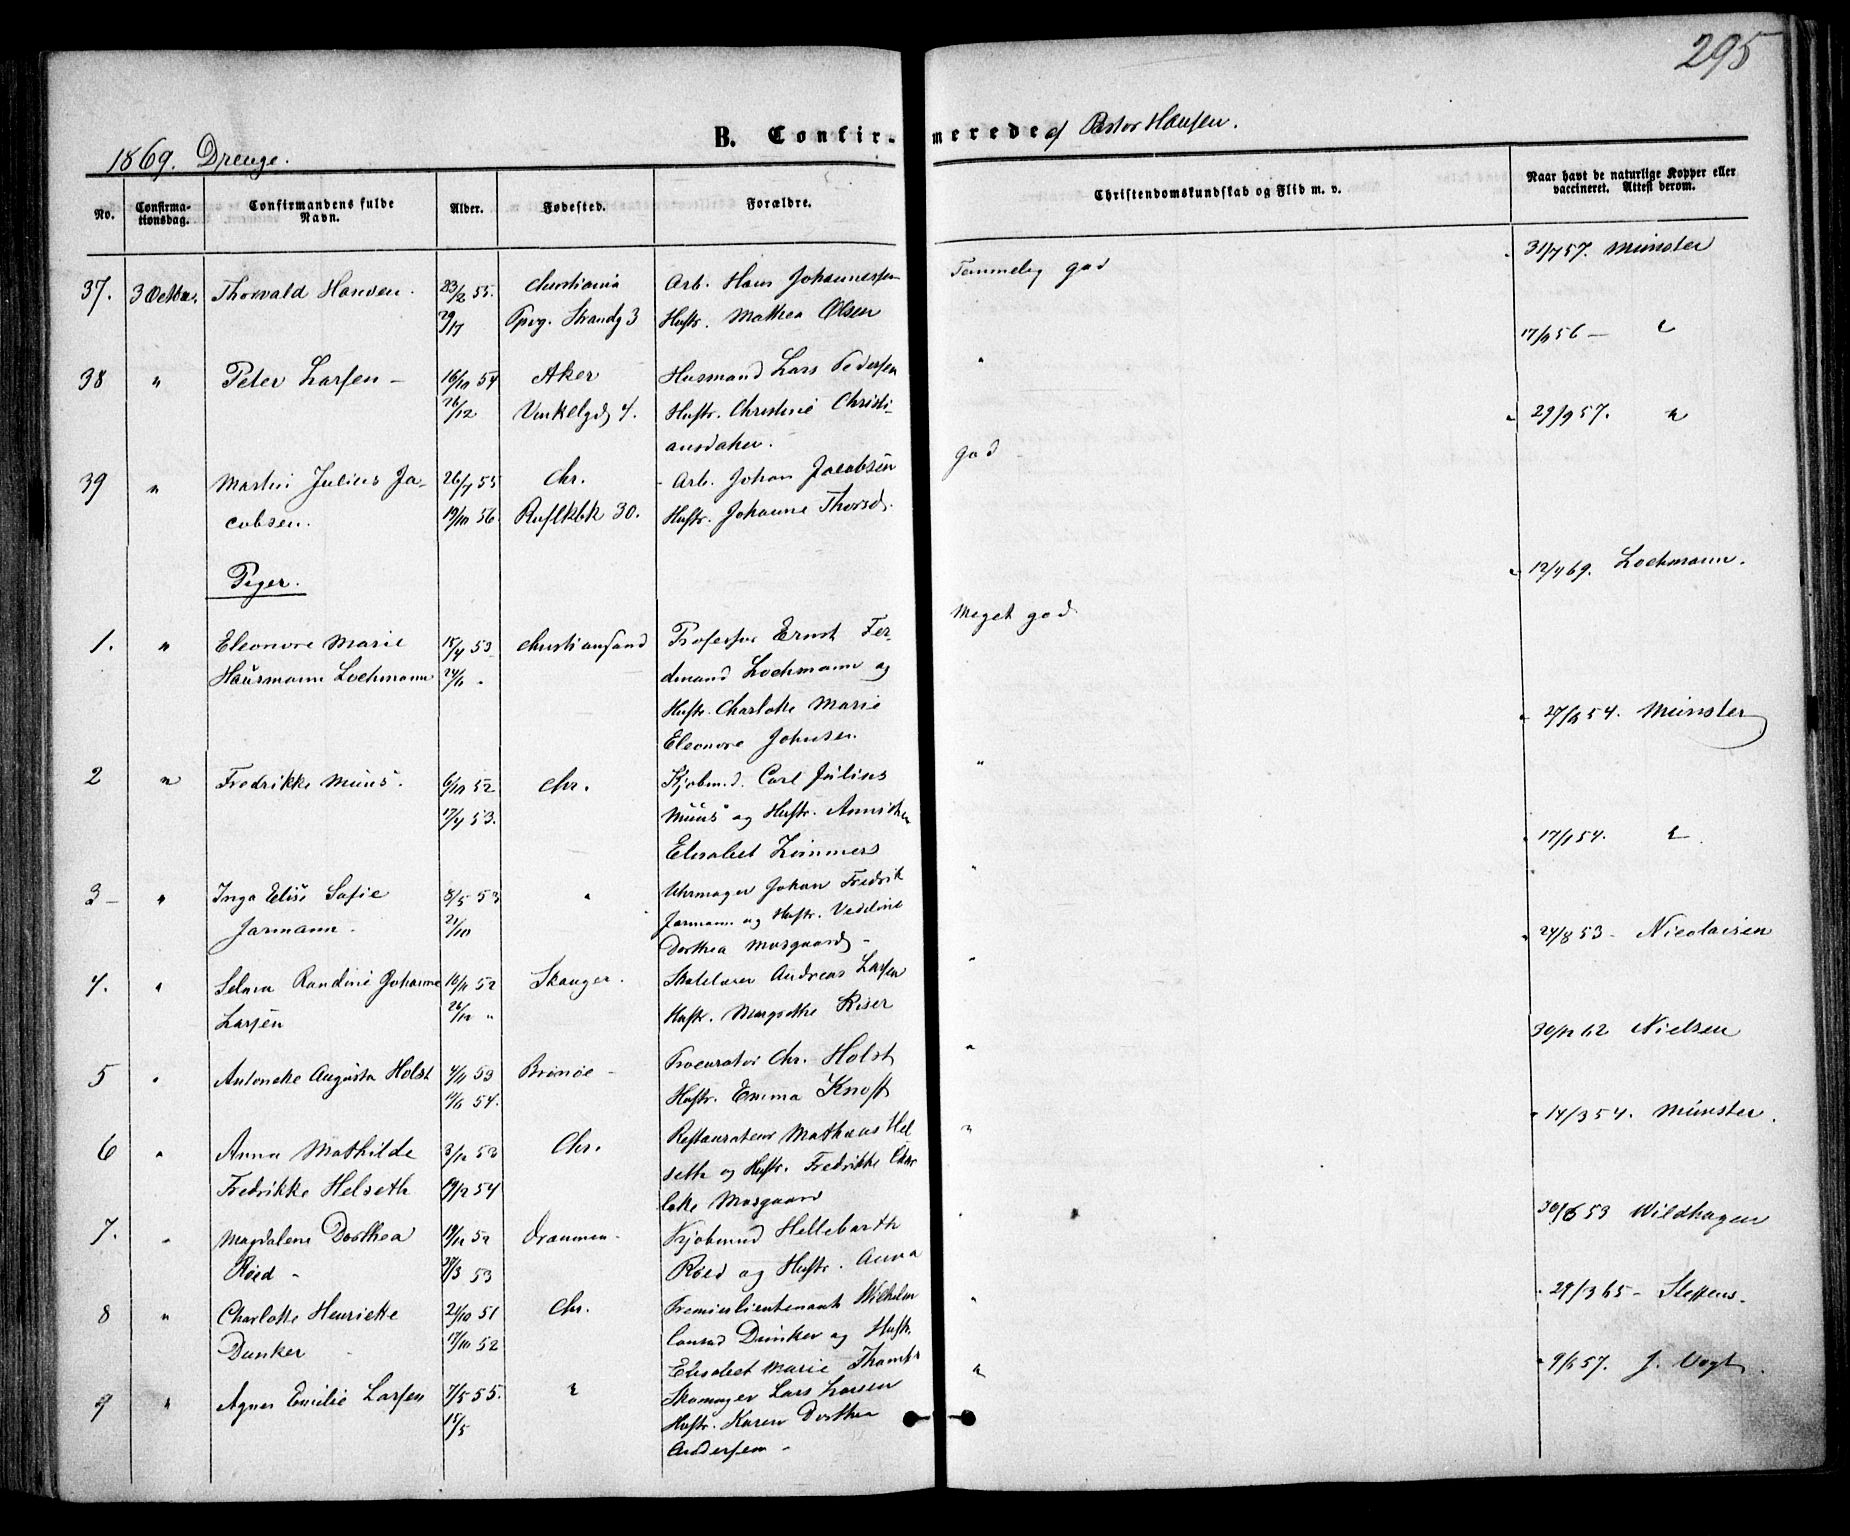 295
B. Confirmerede af Pastor Hansen.
1869. Drenge.
No. Confirmationsdag. Confirmandens fulde Navn. Alder. Fødested. Forældre. Christendomskundskab og Flid m. v. Naar havt de naturlige Kopper eller vaccineret. Attest derom.
37. 3 Octbr. Thorvald Hansen. 23/2 55. Christiania Arb. Hans Johannesen Temmelig god 31/7 57. Münster
29/11 Strandg 3 Hustr. Mathea Olsen
38 " Peter Larsen - 16/10 54 Aker Husmand Lars Pedersen " 17/9 56 - "
26/12 Vinkelgd 4. Hustr. Christine Christi-
ansdatter.
39 " Martin Julius Ja- 26/7 55 Chr. Arb. Johan Jacobsen god 29/9 57. "
cobsen. 19/10 56. 30. Hustr. Johanne Thorsd.
Piger.
1. " Eleonore Marie 15/4 53 Christiansand Professor Ernst Fer- Meget god 12/4 69. Lochmann.
Hausmann Lochmann 24/6 - dinand Lochmann og
Hustr. Charlotte Marie
Eleonore Johnsen
2 " Fredrikke Muus. 6/10 52 Chr. Kjøbmd. Carl Julius " 27/6 54. Münster
17/4 53. Muus og Hustr. Anniken
Elisabet Zimmers
3 - " Inga Elise Sofie 8/5 53 " Uhrmager Johan Fredrik " 17/1 54. "
Jarmann. 21/10 Jarmann og Hustr.
Dorthea Mosgaard -
4. " Selma Randine Johanne 10/11 52 Skauger. Andreas Larsen " 24/8 53 - Nicolaisen
Larsen 26/12 " Hustr. Margrethe Riser
5 " Antonette Augusta Holst 4/11 53 Brønøe - Procurator Chr. Holst " 30/12 62 Nielsen
11/6 54. Hustr. Emma Knoff
6 " Anna Mathilde 3/12 53 Chr. Restauratør Mathæus Hel- " 14/3 54. Münster.
Fredrikke Helseth 19/2 54 seth og Hustr. Fredrikke Char-
lotte Mosgaard
7. " Magdalene Dorthea 19/12 52 Drammen - Kjøbmand Hellebarth " 30/6 53 Wildhagen
Røed - 27/3 53 Røed og Hustr. Anna
8 " Charlotte Henriette 21/10 51 Chr. Premierlieutenant Wilhelm " 29/3 65 - Steffens.
Dunker 17/10 52 Conrad Dunker og Hustr.
Elisabet Marie
9 " Agnes Emilie Larsen 7/5 55. " Skomager Lars Larsen " 9/6 57. J. Vogt.
15/5 Hustr. Karen Dorthea
Andersen -